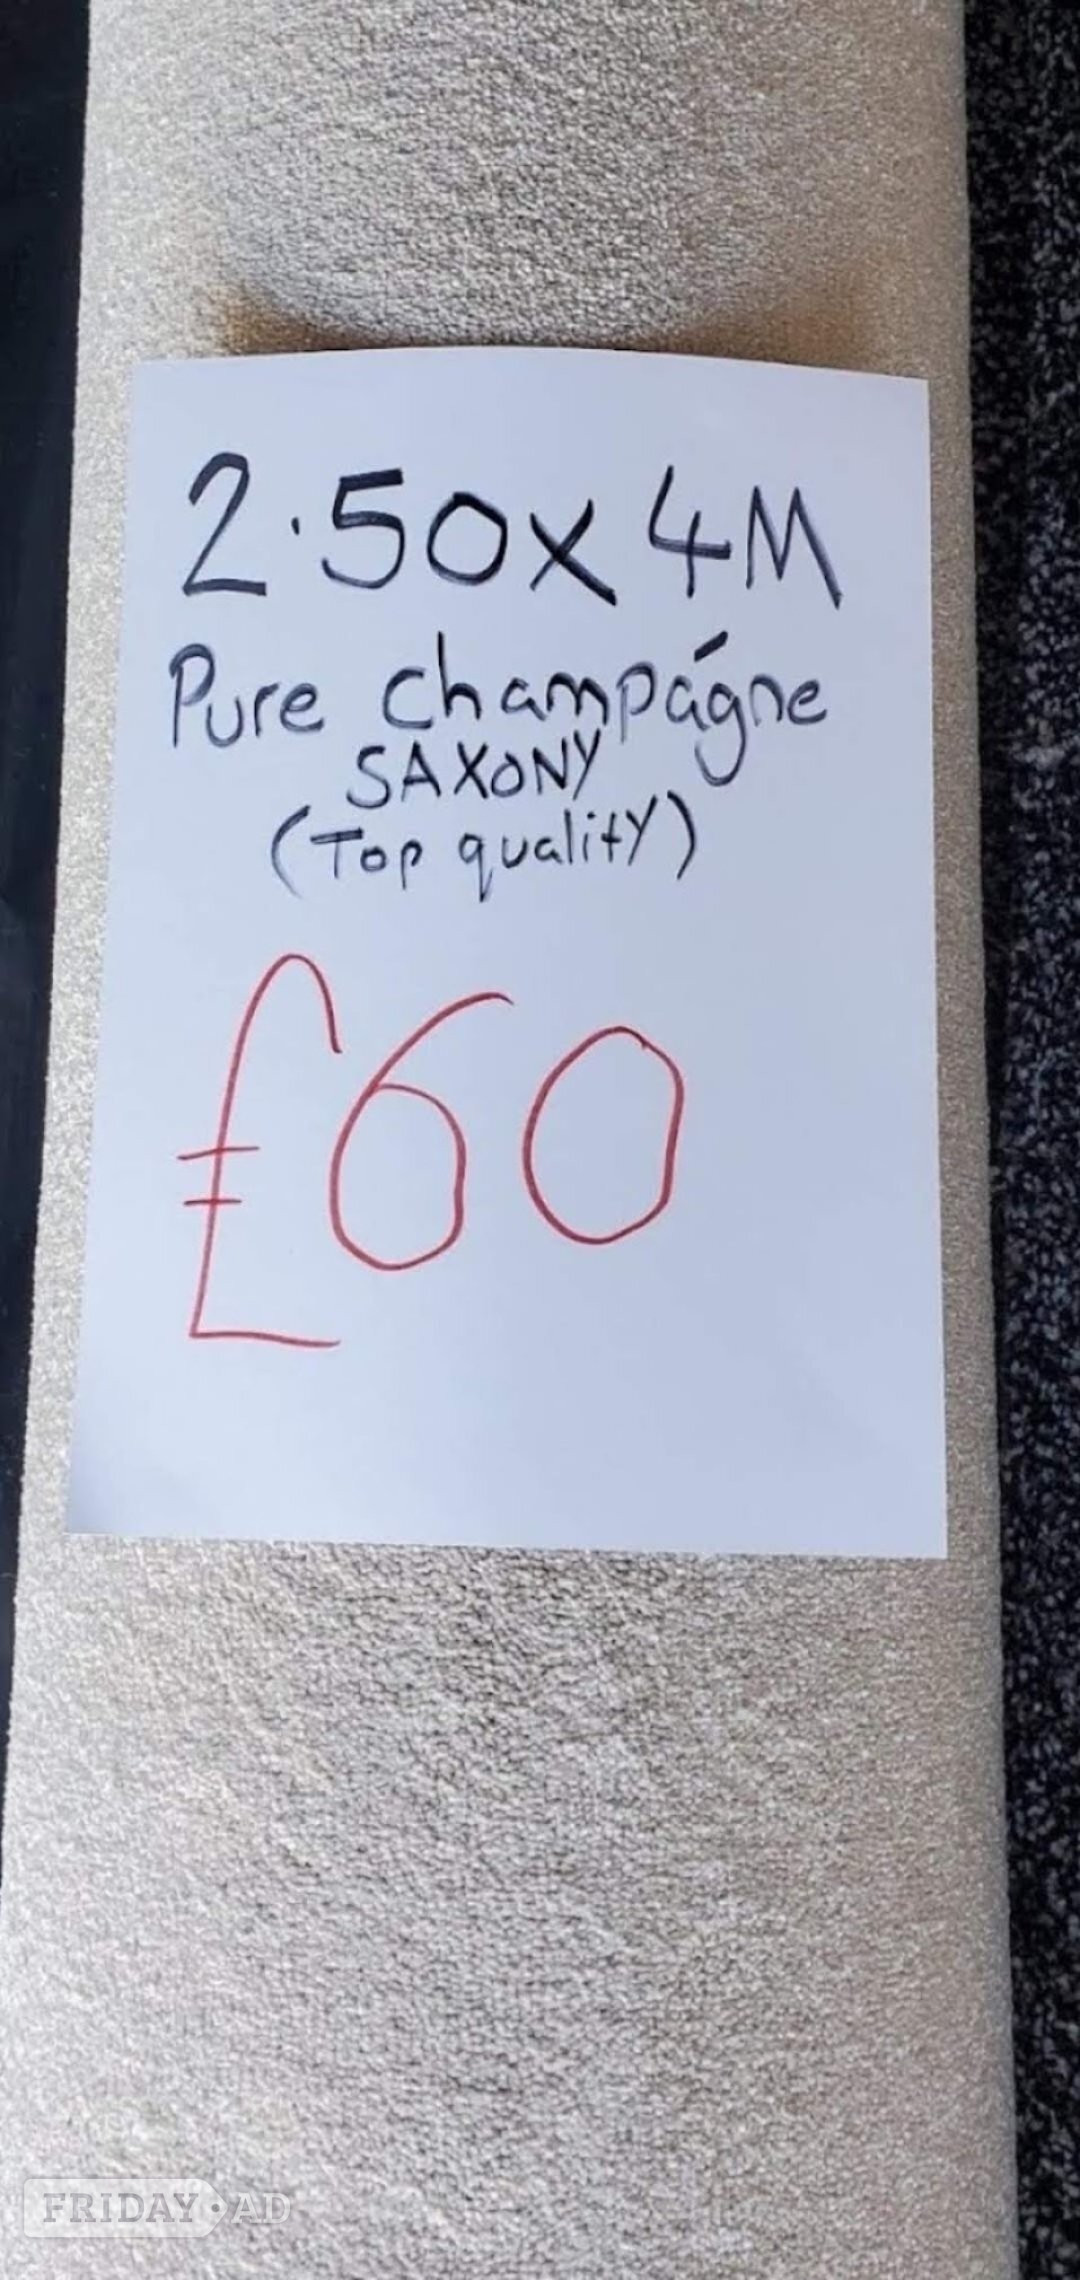 2.50x4M
Pure champágne
SAXONY
(Top quality)
£60
FRIDAY-AD